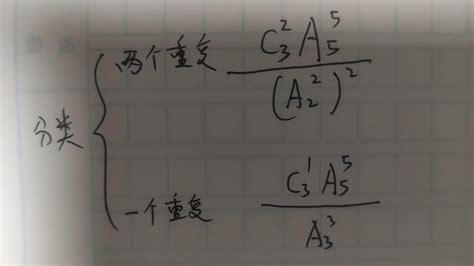 分类 { 两个重复 \frac{C_3^2 A_5^5}{(A_2^2)^2}
一个重复 \frac{C_3^1 A_5^5}{A_3^3}